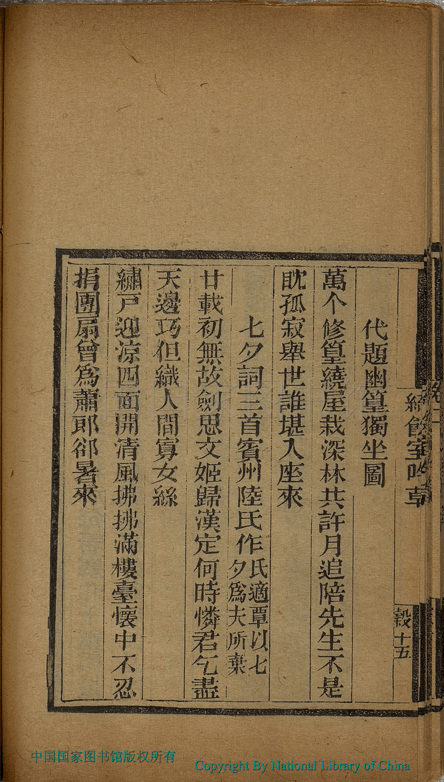 代題幽篁獨坐圖
萬个修篁繞屋栽深林共許月追陪先生不是
耽孤寂舉世誰堪入座來
七夕詞三首賓州陸氏作氏適覃以七
夕爲夫所棄
廿載初無故劍思文姬歸漢定何時憐君乞盡
天邊巧但織人間寡女絲
繡戶迎凉四面開清風拂拂滿樓臺懷中不忍
捐團扇曾爲蕭郎卻暑來
十五
中国国家图书馆版权所有
Copyright By National Library of China